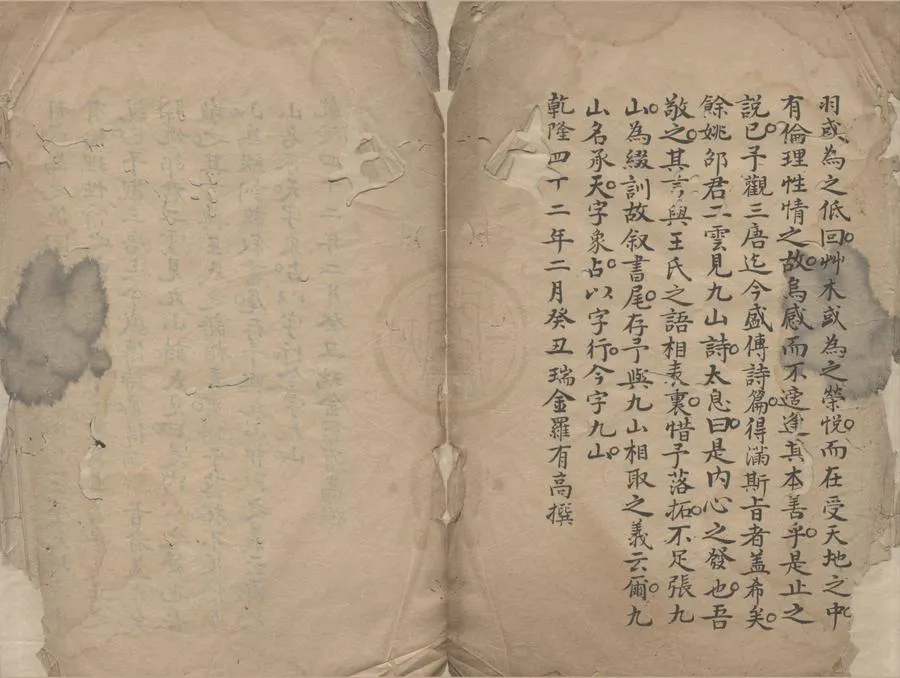 羽或為之低回。艸木或為之榮悅。而在受天地之中
有倫理性情之故。烏感而不遑逢其本善乎。是止之
說已。予觀三唐迄今盛傳詩篇。得滿斯旨者蓋希矣。
餘姚邵君二雲見九山詩。太息曰。是內心之發也。吾
敬之。其言與王氏之語相表裏。惜予落拓。不足張九
山。為綴訓故。叙書尾。存予與九山相取之義云爾。九
山名承天。字象占。以字行。今字九山。
乾隆四十二年二月癸丑瑞金羅有高撰